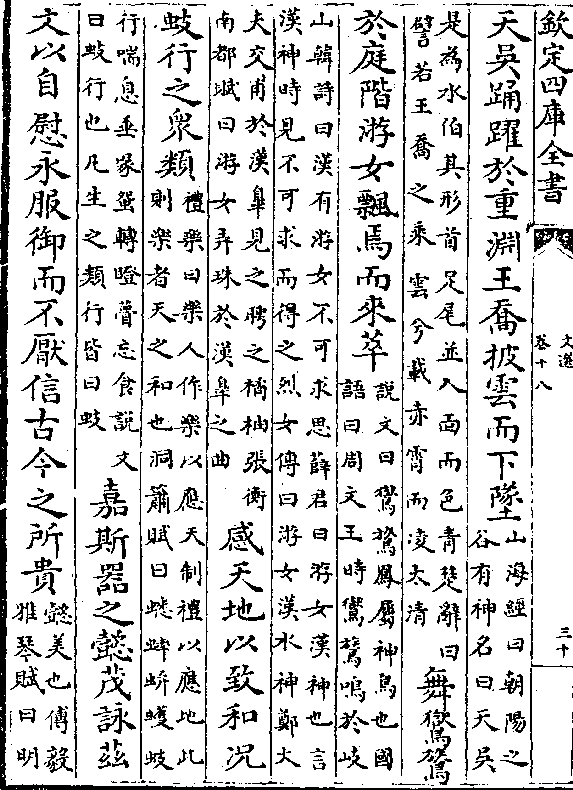 欽定四庫全書
文選
卷十八
三十
天吳踊躍於重淵王喬披雲而下墜
山海經曰朝陽之
谷有神名曰天吳
是為水伯其形首足尾並人面而色青楚辭曰
譬若王喬之乘雲兮載赤霄而凌太清
舞鸑鷟
於庭階游女飄焉而來萃
說文曰鸑鷟鳳屬神鳥也國
語曰周文王時鸑鷟鳴於岐
山韓詩曰漢有游女不可求思薛君曰游女漢神也言
漢神時見不可求而得之烈女傳曰游女漢水神鄭大
夫交甫於漢臯見之聘之橘柚張衡
南都賦曰游女弄珠於漢臯之曲
感天地以致和况
蚑行之衆類
禮樂曰樂人作樂以應天制禮以應地此
則樂者天之和也洞簫賦曰蟋蟀蚸蠖蚑
行喘息垂轉瞪瞢忘食說文
曰蚑行也凡生之類行皆曰蚑
嘉斯器之懿茂詠茲
文以自慰永服御而不厭信古今之所貴
懿美也傅毅
雅琴賦曰明